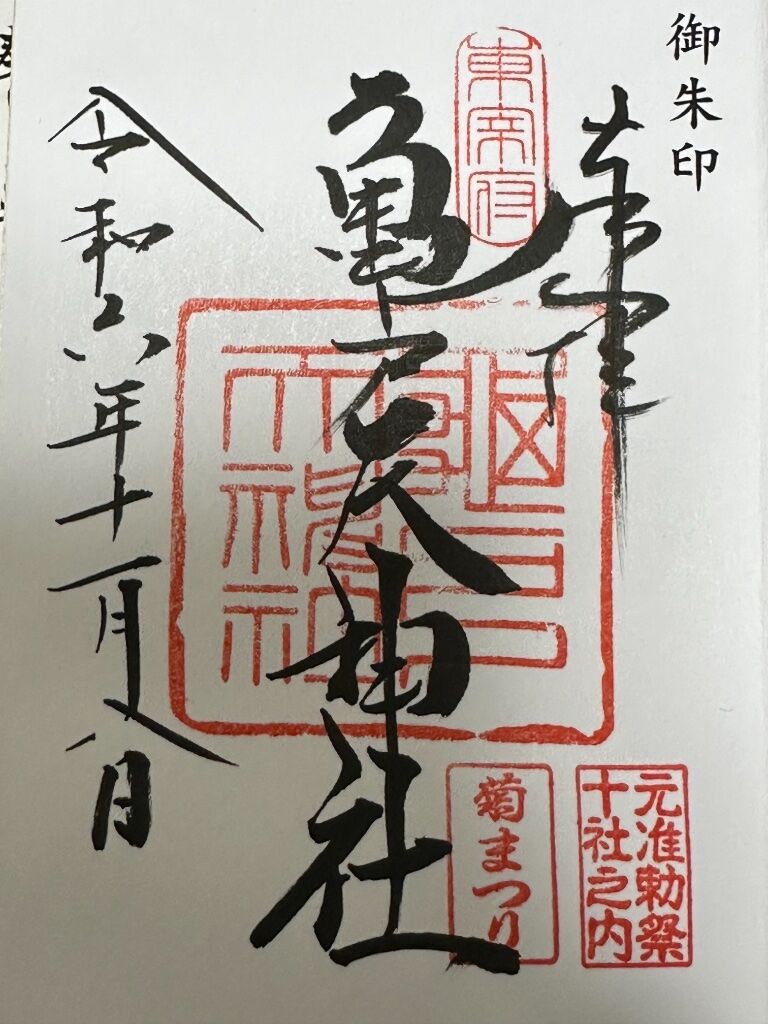 御朱印
奉拝
東宰府
亀戸天神社
元准勅祭
十社之内
菊まつり
令和六年十一月八日